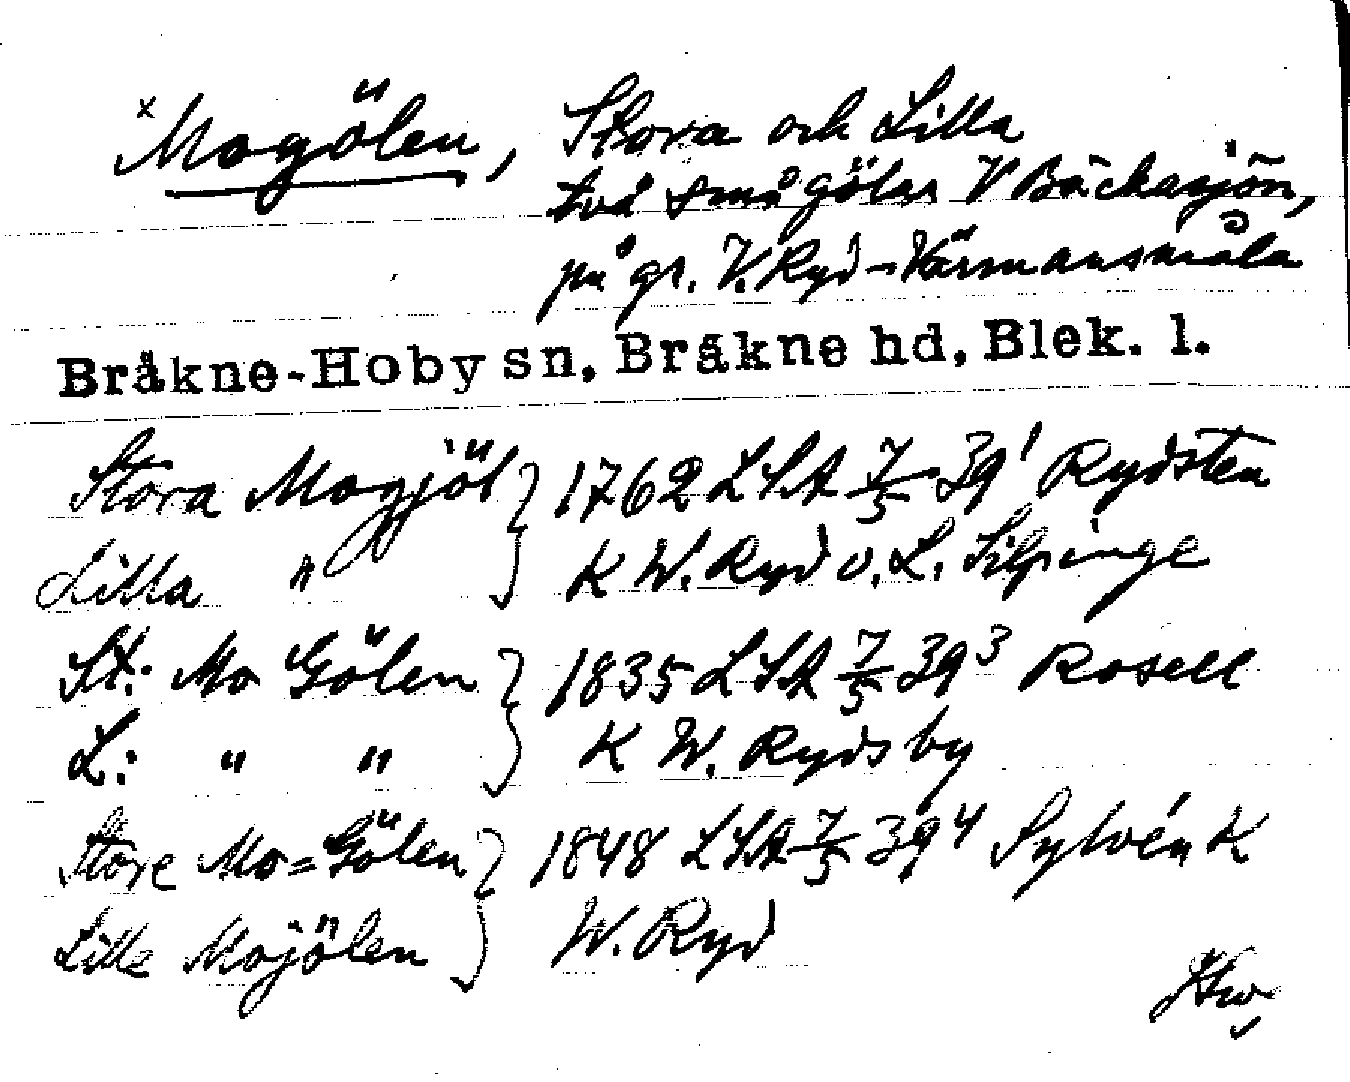 x Mogölen, Stora och Lilla
två små gölar V Bäckasjön,
på gr. V. Ryd - Värmansmåla
Bråkne-Hoby sn, Bråkne hd, Blek. l.
Stora Mogjöl } 1762 LSA 7/5 39¹ Rydsten
Lilla " } K W. Ryd o. L. Silpinge
St: Mo Gölen } 1835 LSA 7/5 39³ Rosell
L: " " } K W. Rydsby
Store Mo=Gölen } 1848 LSA 7/5 39⁴ Sylvén K
Lille Mojölen } W. Ryd